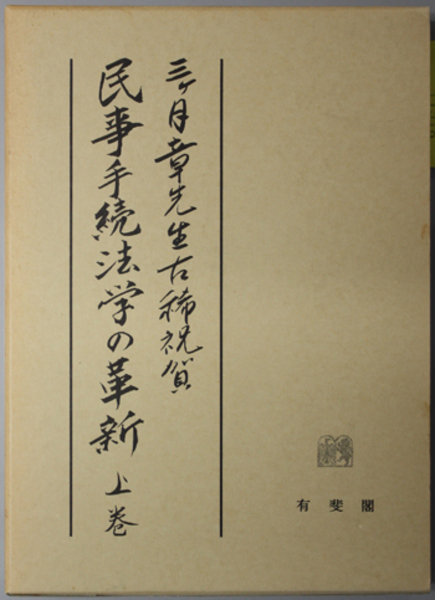 三ヶ月章先生古稀祝賀
民事手続法学の革新 上巻
有斐閣